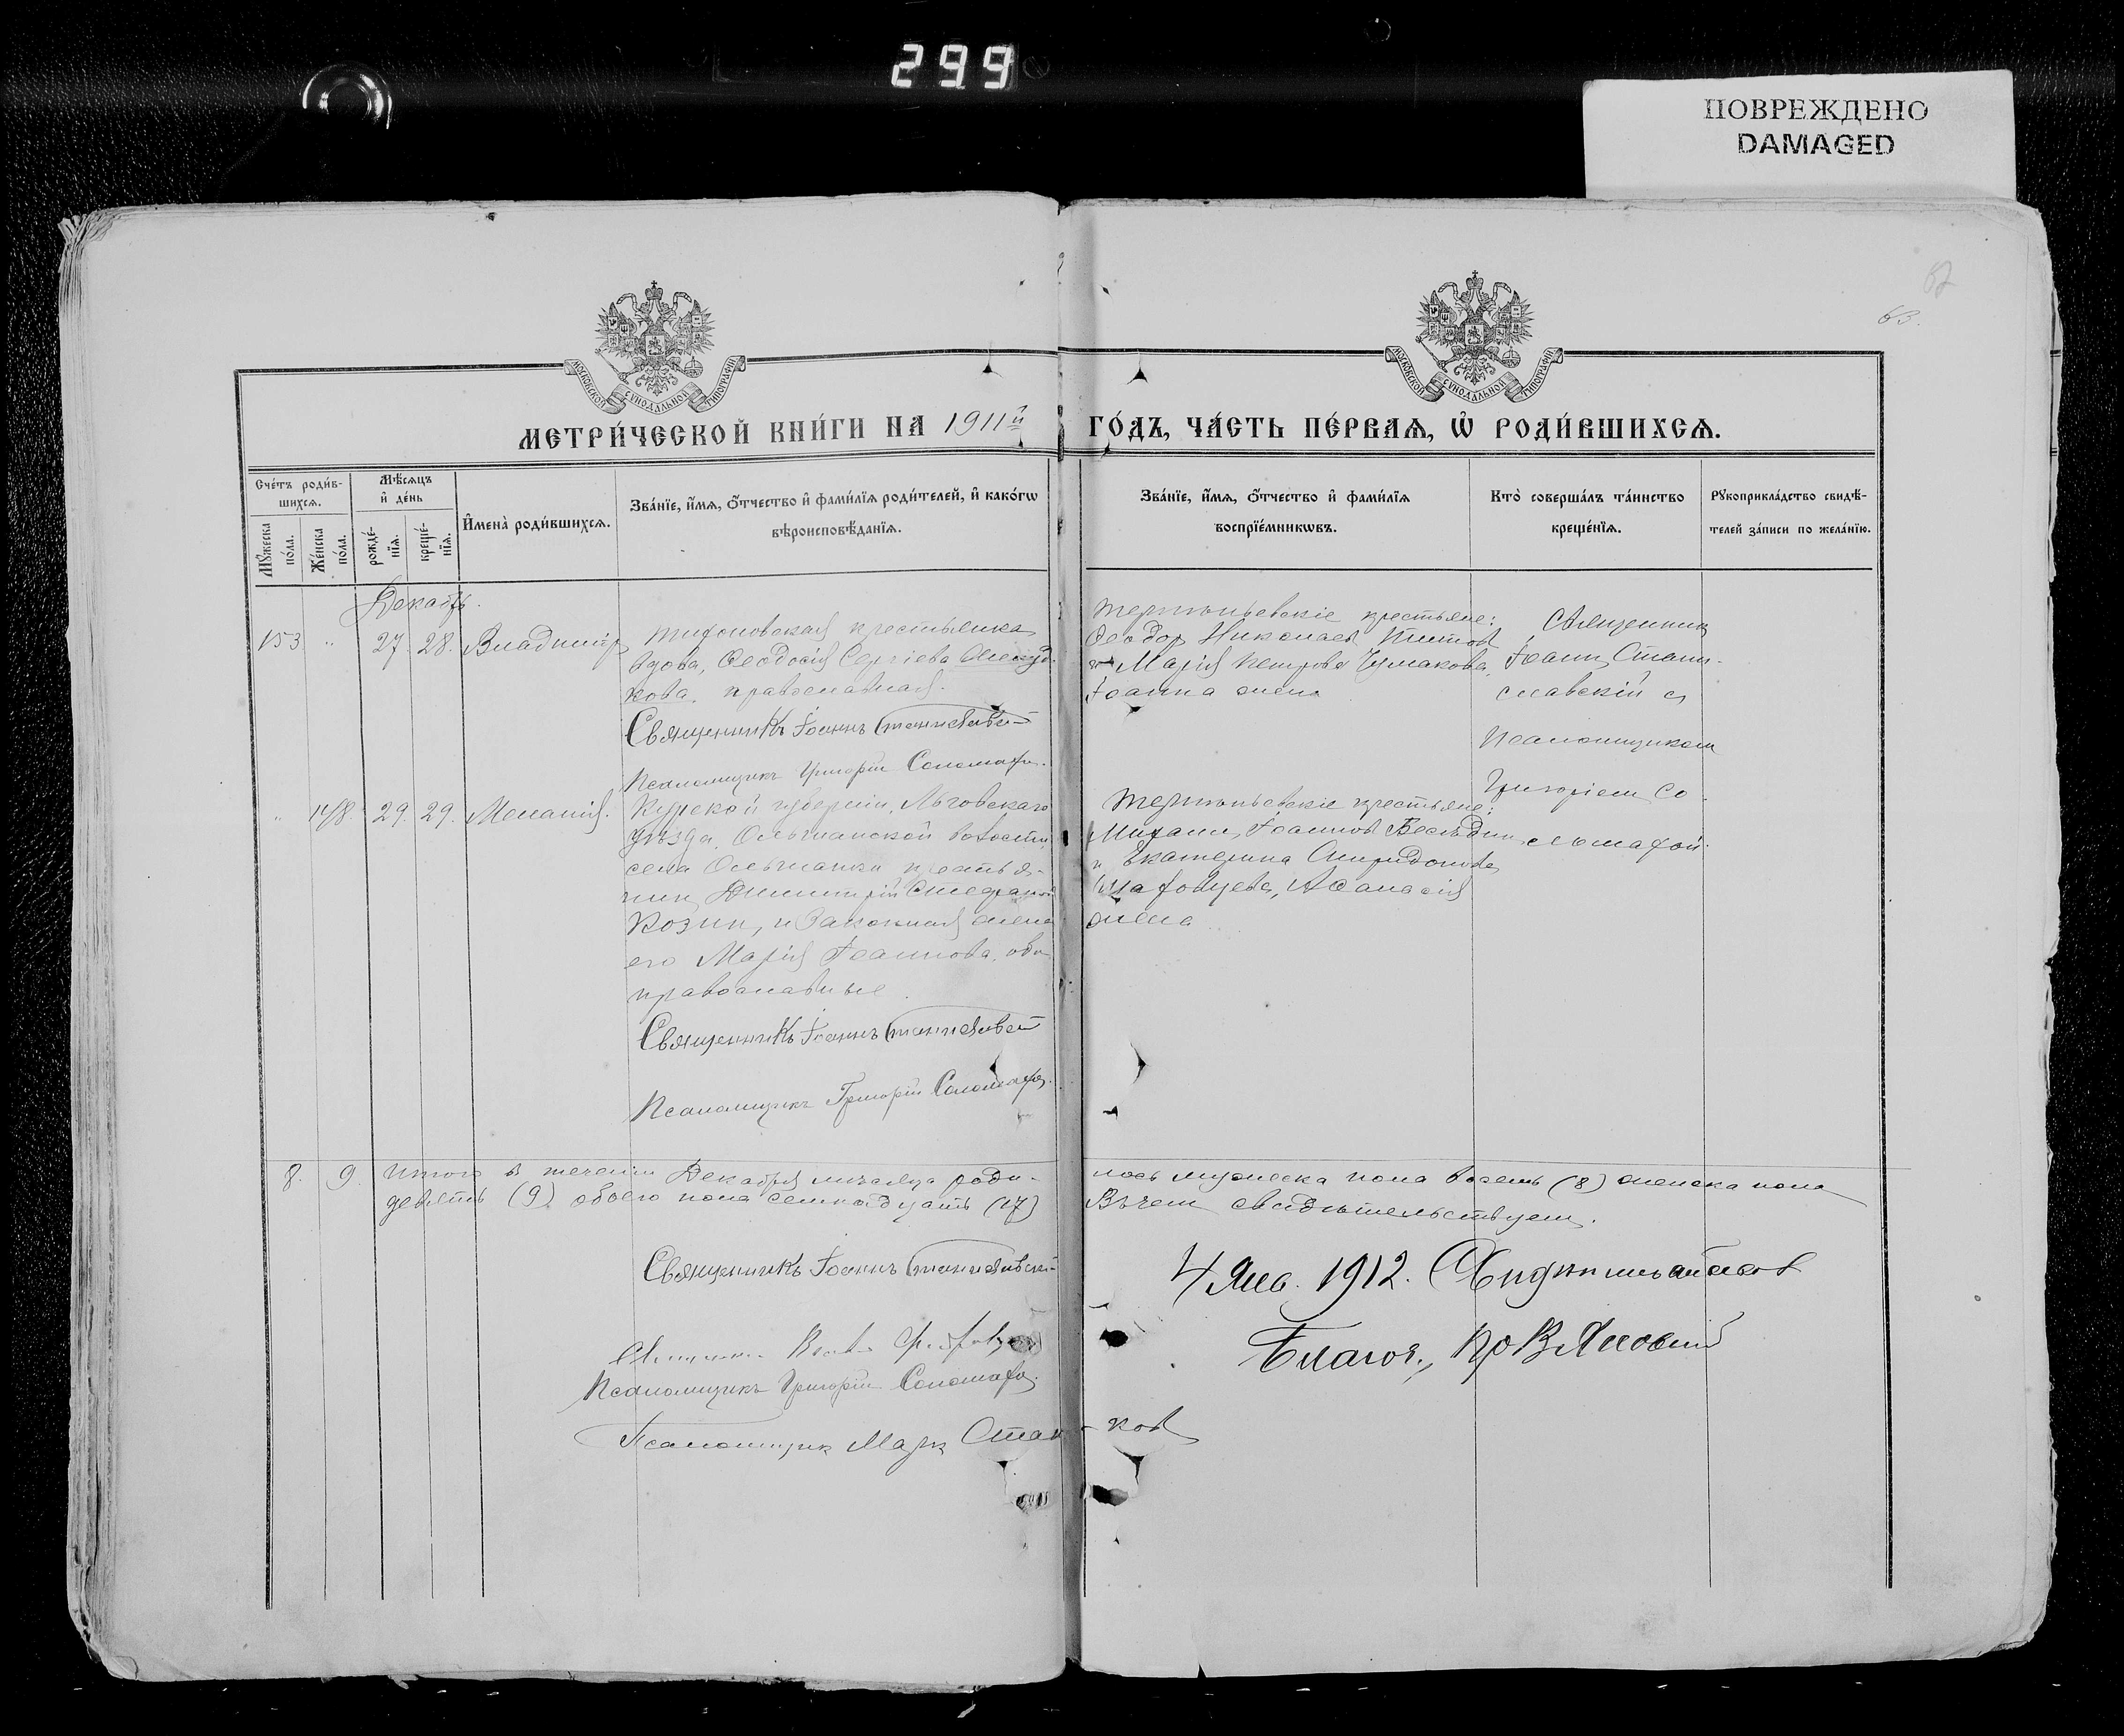 299
ПОВРЕЖДЕНО
DAMAGED
63.
МОСКОВСКОЙ СУНОДАЛЬНОЙ ТИПОГРАФІИ
МОСКОВСКОЙ СУНОДАЛЬНОЙ ТИПОГРАФІИ
МЕТРИ́ЧЕСКОЙ КНИ́ГИ НА 1911й ГО́ДЪ, ЧА́СТЬ ПЕ́РВАѦ, Ѡ҆ РОДИ́ВШИХСѦ.
Сче́тъ роди́вшихсѧ.
Мꙋ́жеска по́ла.
Же́нска по́ла.
Мѣ́сѧцъ и҆ де́нь
рожде́нїѧ.
креще́нїѧ.
И҆мена̀ роди́вшихсѧ.
Зва́нїе, и҆́мѧ, ѻ҆́тчество и҆ фами́лїѧ роди́телей, и҆ како́гѡ
вѣроисповѣ́данїѧ.
Зва́нїе, и҆́мѧ, ѻ҆́тчество и҆ фами́лїѧ
воспрїе́мникѡвъ.
Кто̀ соверша́лъ та́инство
креще́нїѧ.
Рꙋкоприкла́дство свидѣ́-
телей за́писи по жела́нїю.
Декабрь.
153 " 27. 28. Владиміръ
Тихоновская крестьянка
вдова, Ѳеодосія Сергіева
кова. православная.
Священникъ Іоаннъ Станиславскій
Псаломщикъ Григорій Соломаха.
крестьяне:
Ѳеодор Николаев Титов
и Марія Петрова Чумакова,
Іоанна жена
Священник
Іоанн Стани-
славскій с
псаломщиком
Григоріем Со-
ломахой.
" 148. 29. 29. Меланія.
Курской губерніи, Льговскаго
уѣзда, Ольшанской волости,
села Ольшанки крестья-
нин Димитрій Стефанов
Козин, и законная жена
его Марія Іоаннова, оба
православные
Священникъ Іоаннъ Станиславскій
Псаломщикъ Григорій Соломаха.
крестьяне:
Михаил Іоаннов Бесѣдин
и Екатерина Спиридонова
Аѳанасія
жена
8. 9. Итого в теченіи Декабря мѣсяца роди-
лось мужеска пола восемь (8) женска пола
девять (9) обоего пола семнадцать (17)
В чем свидѣтельствуем.
Священникъ Іоаннъ Станиславскій
4 Янв. 1912.
Благоч.,
Псаломщикъ Григорій Соломаха.
Псаломщик Марк